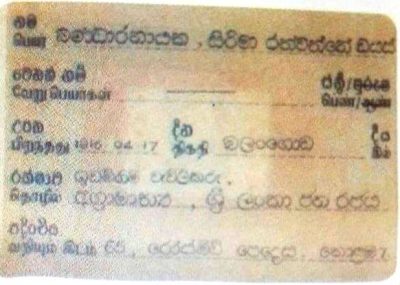 නම
பெயர் බණ්ඩාරනායක , සිරිමා රත්වත්තේ ඩයස්
වෙනත් නම් ස්ත්‍රී/පුරුෂ
வேறு பெயர்கள் பெண்/ஆண்
උපන් දින
பிறந்தது 1916 04 17 திகதி බලංගොඩ
රක්ෂාව ඉඩම්හිමි වැවිලිකරු .
தொழில் අග්‍රාමාත්‍ය , ශ්‍රී ලංකා ජන රජය
පදිංචිය
வதியும் இடம் 65, රොස්මිඩ් පෙදෙස, කොළඹ 7.